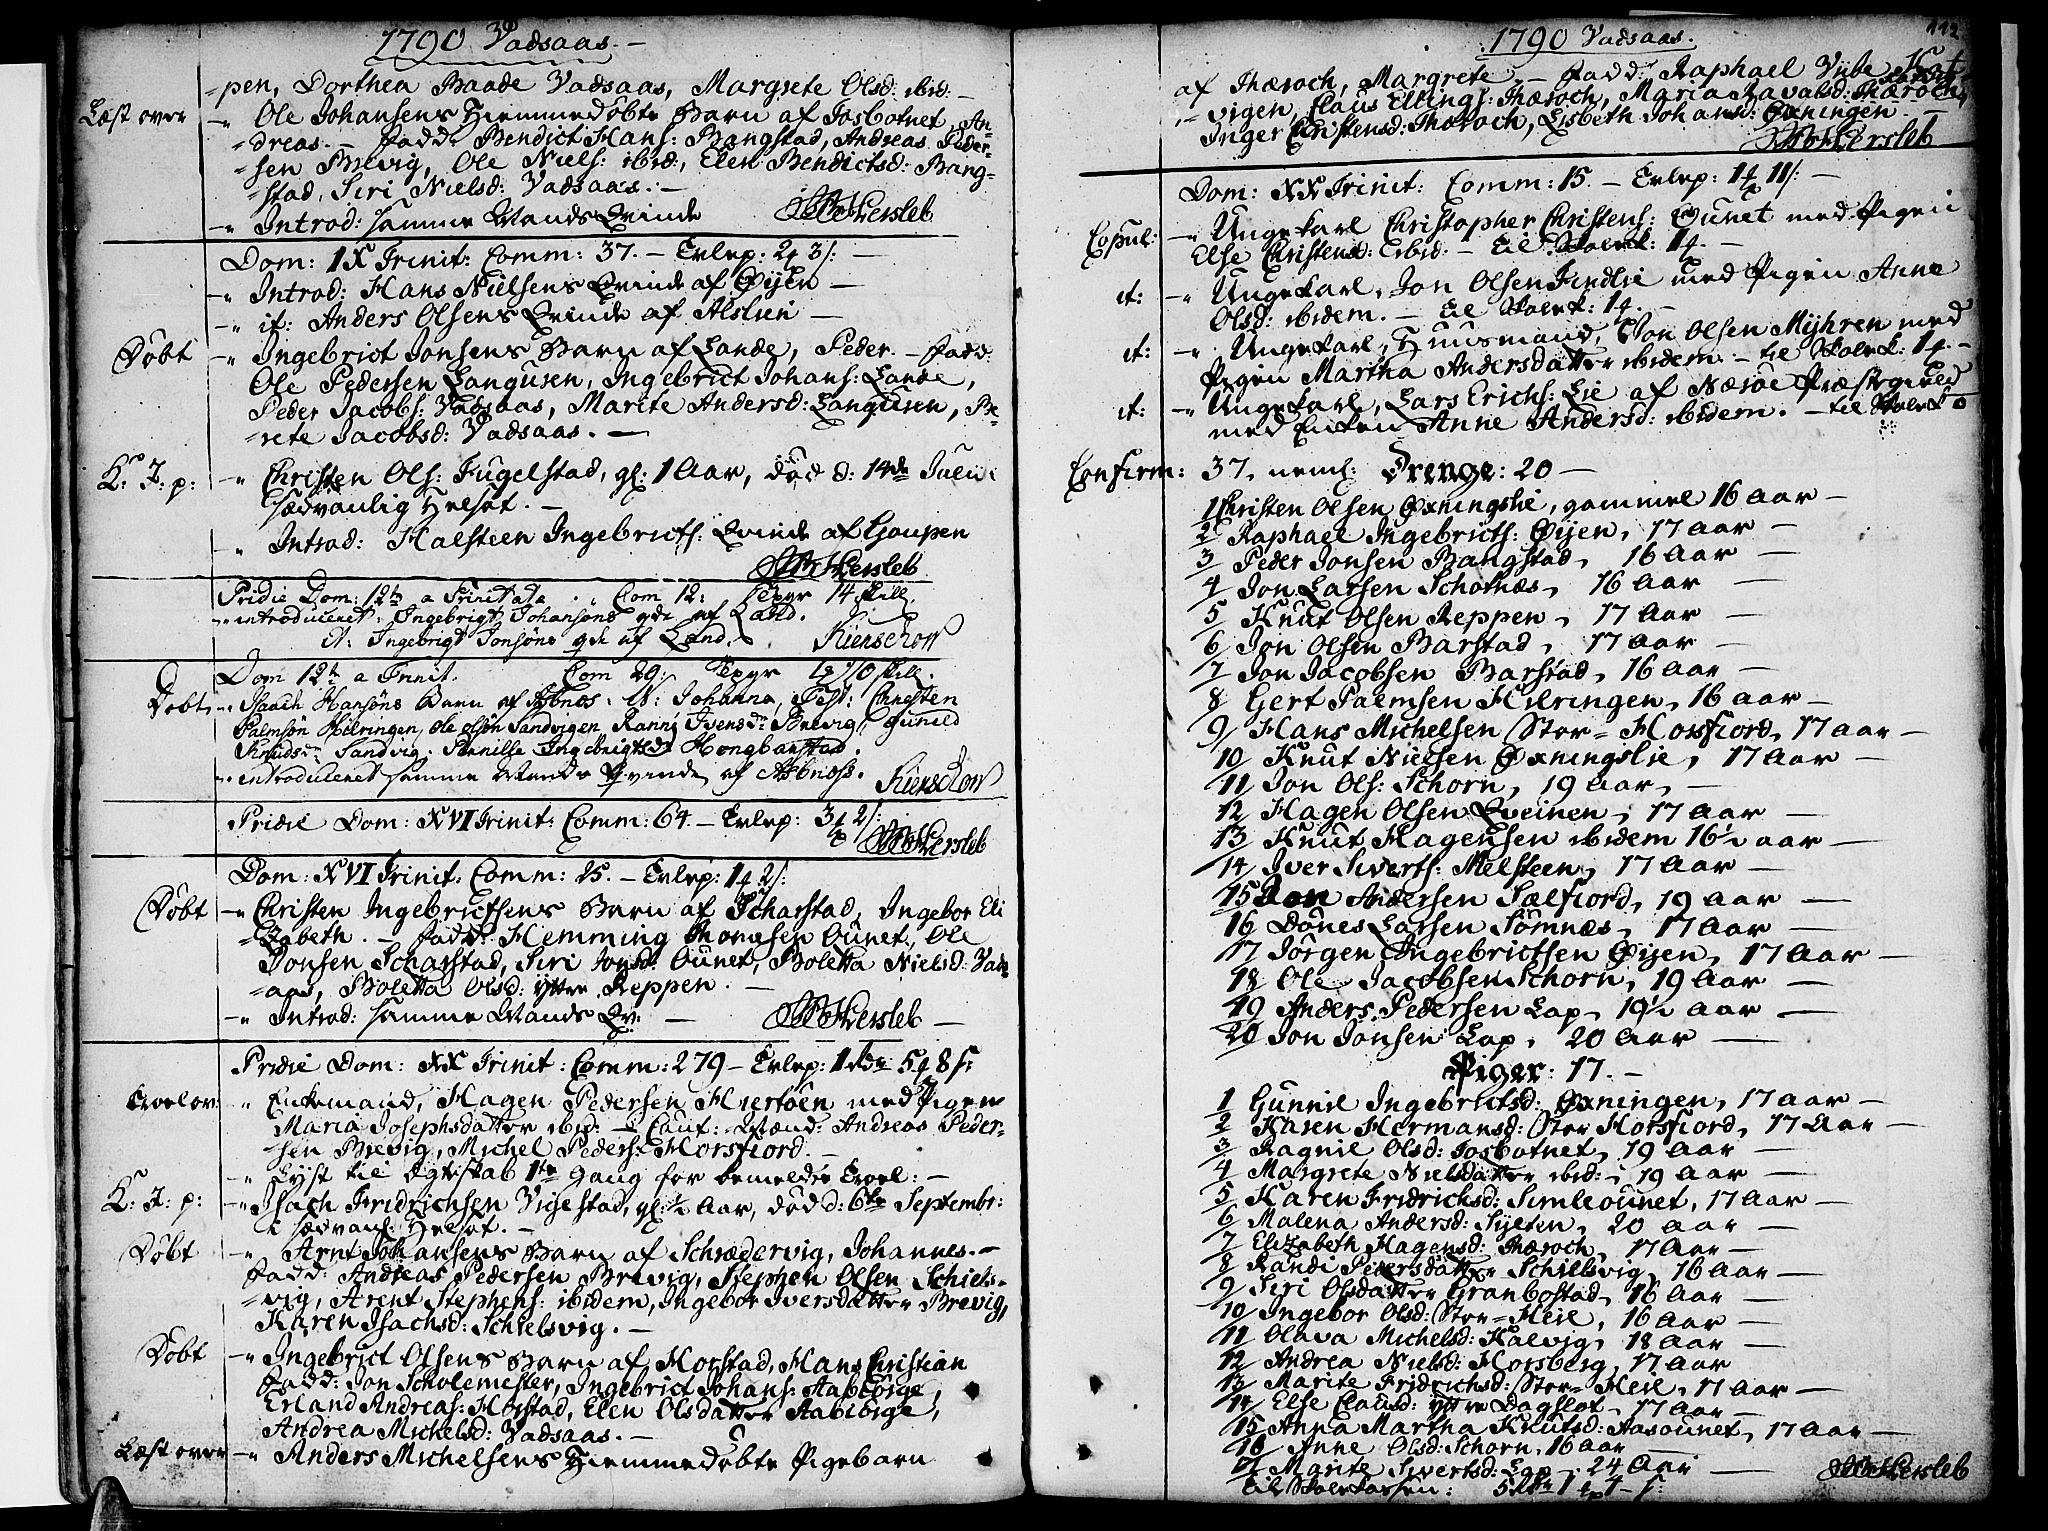 1790 Vadsaas. –
-pen, Dorthea Baade Vadsaas, Margrete Olsd: ibid: –
Læst over -„ Ole Johansens Hiemmedøbte Barn af Josbotnet, An-
-dreas. – Fadd: Bendict Hans: Bangstad, Andreas Peder-
-sen Brevig, Ole Niels: ibid:, Elen Bendictsd: Bang-
-stad, Siri Nielsd: Vadsaas. –
-„ Introd: samme Mands Qvinde Hersleb
Dom: IX Trinit: Comm: 37. – Erlep: 2 3/: –
-„ Introd: Hans Nielsens Qvinde af Øijen –
-„ it: Anders Olsens Qvinde af Alslien –
Døbt -„ Ingebrict Jonsens Barn af Lande, Peder. – Fadd:
Ole Pedersen Langusen, Ingebrict Johans: Lande,
Peder Jacobs: Vadsaas, Marite Andersd: Langusen, Be-
-rete Jacobsd: Vadsaas. –
K: J: p: -„ Christen Ols: Fugelstad, gl: 1 Aar, død d: 14de Julii
sædvanlig Helsot. –
-„ Introd: Halsteen Ingebricts: Qvinde af Gaupen
Hersleb
Pridie Dom: 12te a Trinitate. Com 12: Expr 14 skill.
-„ introduceret, Ingebrigt Johansøns qde af Land.
it: Ingebrigt Jonsøns qde af Land. Kienschow
Dom 12te a Trinit. Com 29: Expr 10 skill.
Døbt, -„ Isach Hansøns Barn af Asbnos. N: Johanna, Test: Christen
Palmsøn Hilringen, Ole olsøn Sandvigen, Ranni Ivensdr Brevig, Gunild
Knudsdr Sandvig, Pernille Ingebrigtsdr Hongbarstad.
-„ introduceret samme Mands Qvinde af Asbnoss. Kienschow
Pridie Dom: XVI Trinit: Comm: 64. – Erlep: 3 2/:
Hersleb
Dom: XVI Trinit: Comm: 25. – Erlep: 1 2/:
Døbt -„ Christen Ingebrictsens Barn af Scharstad, Ingebor Eli
-zabeth. – Fadd: Hemming Thomesen Ounet, Ole
Jonsen Scharstad, Siri Jonsd: Ounet, Boletta Nielsd: Vads-
-aas, Boletta Olsd: yttre Reppen. –
-„ Introd: samme Mands Qv: – Hersleb –
Pridie Dom: XX Trinit: Comm: 279 – Erlep: 1 rdr 5 8 s:
Trolov: -„ Enkemand, Hagen Pedersen Hiertøen med Pigen
Maria Josephsdatter ibid: – Caut: Mænd: Andreas Peder-
sen Brevig, Michel Peders: Horsfiord. –
-„ Lyst til Ægteskab 1te Gang for bemeldte Trol: –
K: J: p: -„ Isach Fridrichsen Vigestad, gl: ½ Aar, død d: 6te Septembr:
i sædvanl: Helsot. –
Døbt -„ Arnt Johansens Barn af Schrædervig, Johannes. –
Fadd: Andreas Pedersen Brevig, Stephen Olsen Schiels-
-vig, Arent Stephens: ibidem, Ingebor Iversdatter Brevig,
Karen Isachsd: Schielsvig. –
Døbt -„ Ingebrict Olsens Barn af Horstad, Hans Christian
Fadd: Jon Scholemester, Ingebrict Johans: Aabiørge,
Erland Andreas: Horstad, Elen Olsdatter Aabiørge,
Andrea Michelsd: Vadsaas. –
Læst over -„ Anders Michelsens Hiemmedøbte Pigebarn
112
1790 Vadsaas.
af Thæroch, Margrete. – Fadd: Raphael Vibe Kat-
-vigen, Claus Ellings: Thæroch, Maria Zavalsd: Thæroch,
Inger Christensd: Thæroch, Lisbeth Johansd: Øxningen –
Hersleb
Dom: XX Trinit: Comm: 15. – Erlep: 1 11/: –
Copul: -„ Ungekarl Christopher Christens: Ounet med Pigen
Else Christensd: ibid: – til Skolek: 1
it: -„ Ungekarl, Jon Olsen Findlie med Pigen Anne
Olsd: ibidem. – til Skolek: 1
it: -„ Ungekarl, Huusmand, Jon Olsen Myhren med
Pigen Martha Andersdatter ibidem. – til Skolek: 1
it: -„ Ungekarl, Lars Erichs: Lie af Nærøe Præstegield
med Enken Anne Andersd: ibidem. – til Skolek 0
Confirm: 37, neml: Drenge: 20 –
1 Christen Olsen Øxningslie, gammel 16 Aar –
2 Raphael Ingebricts: Øijen, 17 Aar –
3 Peder Jonsen Bangstad, 16 Aar –
4 Jon Larsen Schotnæs, 16 Aar –
5 Knut Olsen Reppen, 17 Aar –
6 Jon Olsen Barstad, 17 Aar –
7 Jon Jacobsen Barstad, 16 Aar –
8 Gert Palmsen Hilringen, 16 Aar –
9 Hans Michelsen Stor-Horsfiord, 17 Aar –
10 Knut Nielsen Øxningslie, 17 Aar –
11 Jon Ols: Schorn, 19 Aar, –
12 Hagen Olsen Qveinen, 17 Aar –
13 Knut Hagensen ibidem 16½ Aar –
14 Iver Siverts: Melsteen, 17 Aar –
15 Jon Andersen Sælfiord, 19 Aar –
16 Dønes Larsen Sømnæs, 17 Aar –
17 Jørgen Ingebrictsen Øijen, 17 Aar –
18 Ole Jacobsen Schorn, 19 Aar –
19 Anders Pedersen Lap, 19½ Aar –
20 Jon Jonsen Lap, 20 Aar –
Piger: 17. –
1 Gunnil Ingebrictsd: Øxningen, 17 Aar –
2 Karen Hermansd: Stor Horsfiord, 17 Aar –
3 Ragnil Olsd: Josbotnet, 19 Aar –
4 Margrete Nielsdatter ibid: 19 Aar –
5 Karen Fridrichsd: Simleounet, 17 Aar –
6 Malena Andersd: Sylten, 20 Aar –
7 Elizabeth Hagensd: Thæroch, 17 Aar –
8 Randi Pedersdatter Schielsvig, 16 Aar –
9 Siri Olsdatter Granbostad, 16 Aar –
10 Ingebor Olsd: Stor-Heil, 16 Aar –
11 Olava Michelsd: Kalvig, 18 Aar –
12 Andrea Nielsd: Horsberg, 17 Aar
13 Marite Fridrichsd: Stor-Heil, 17 Aar –
14 Else Clausd: yttre Dagslot, 17 Aar –
15 Anna Martha Knutsd: Aasounet, 17 Aar –
16 Anne Olsd: Schorn, 16 Aar –
17 Marite Sivertsd: Lap, 24 Aar – Hersleb
til Skolekassen: